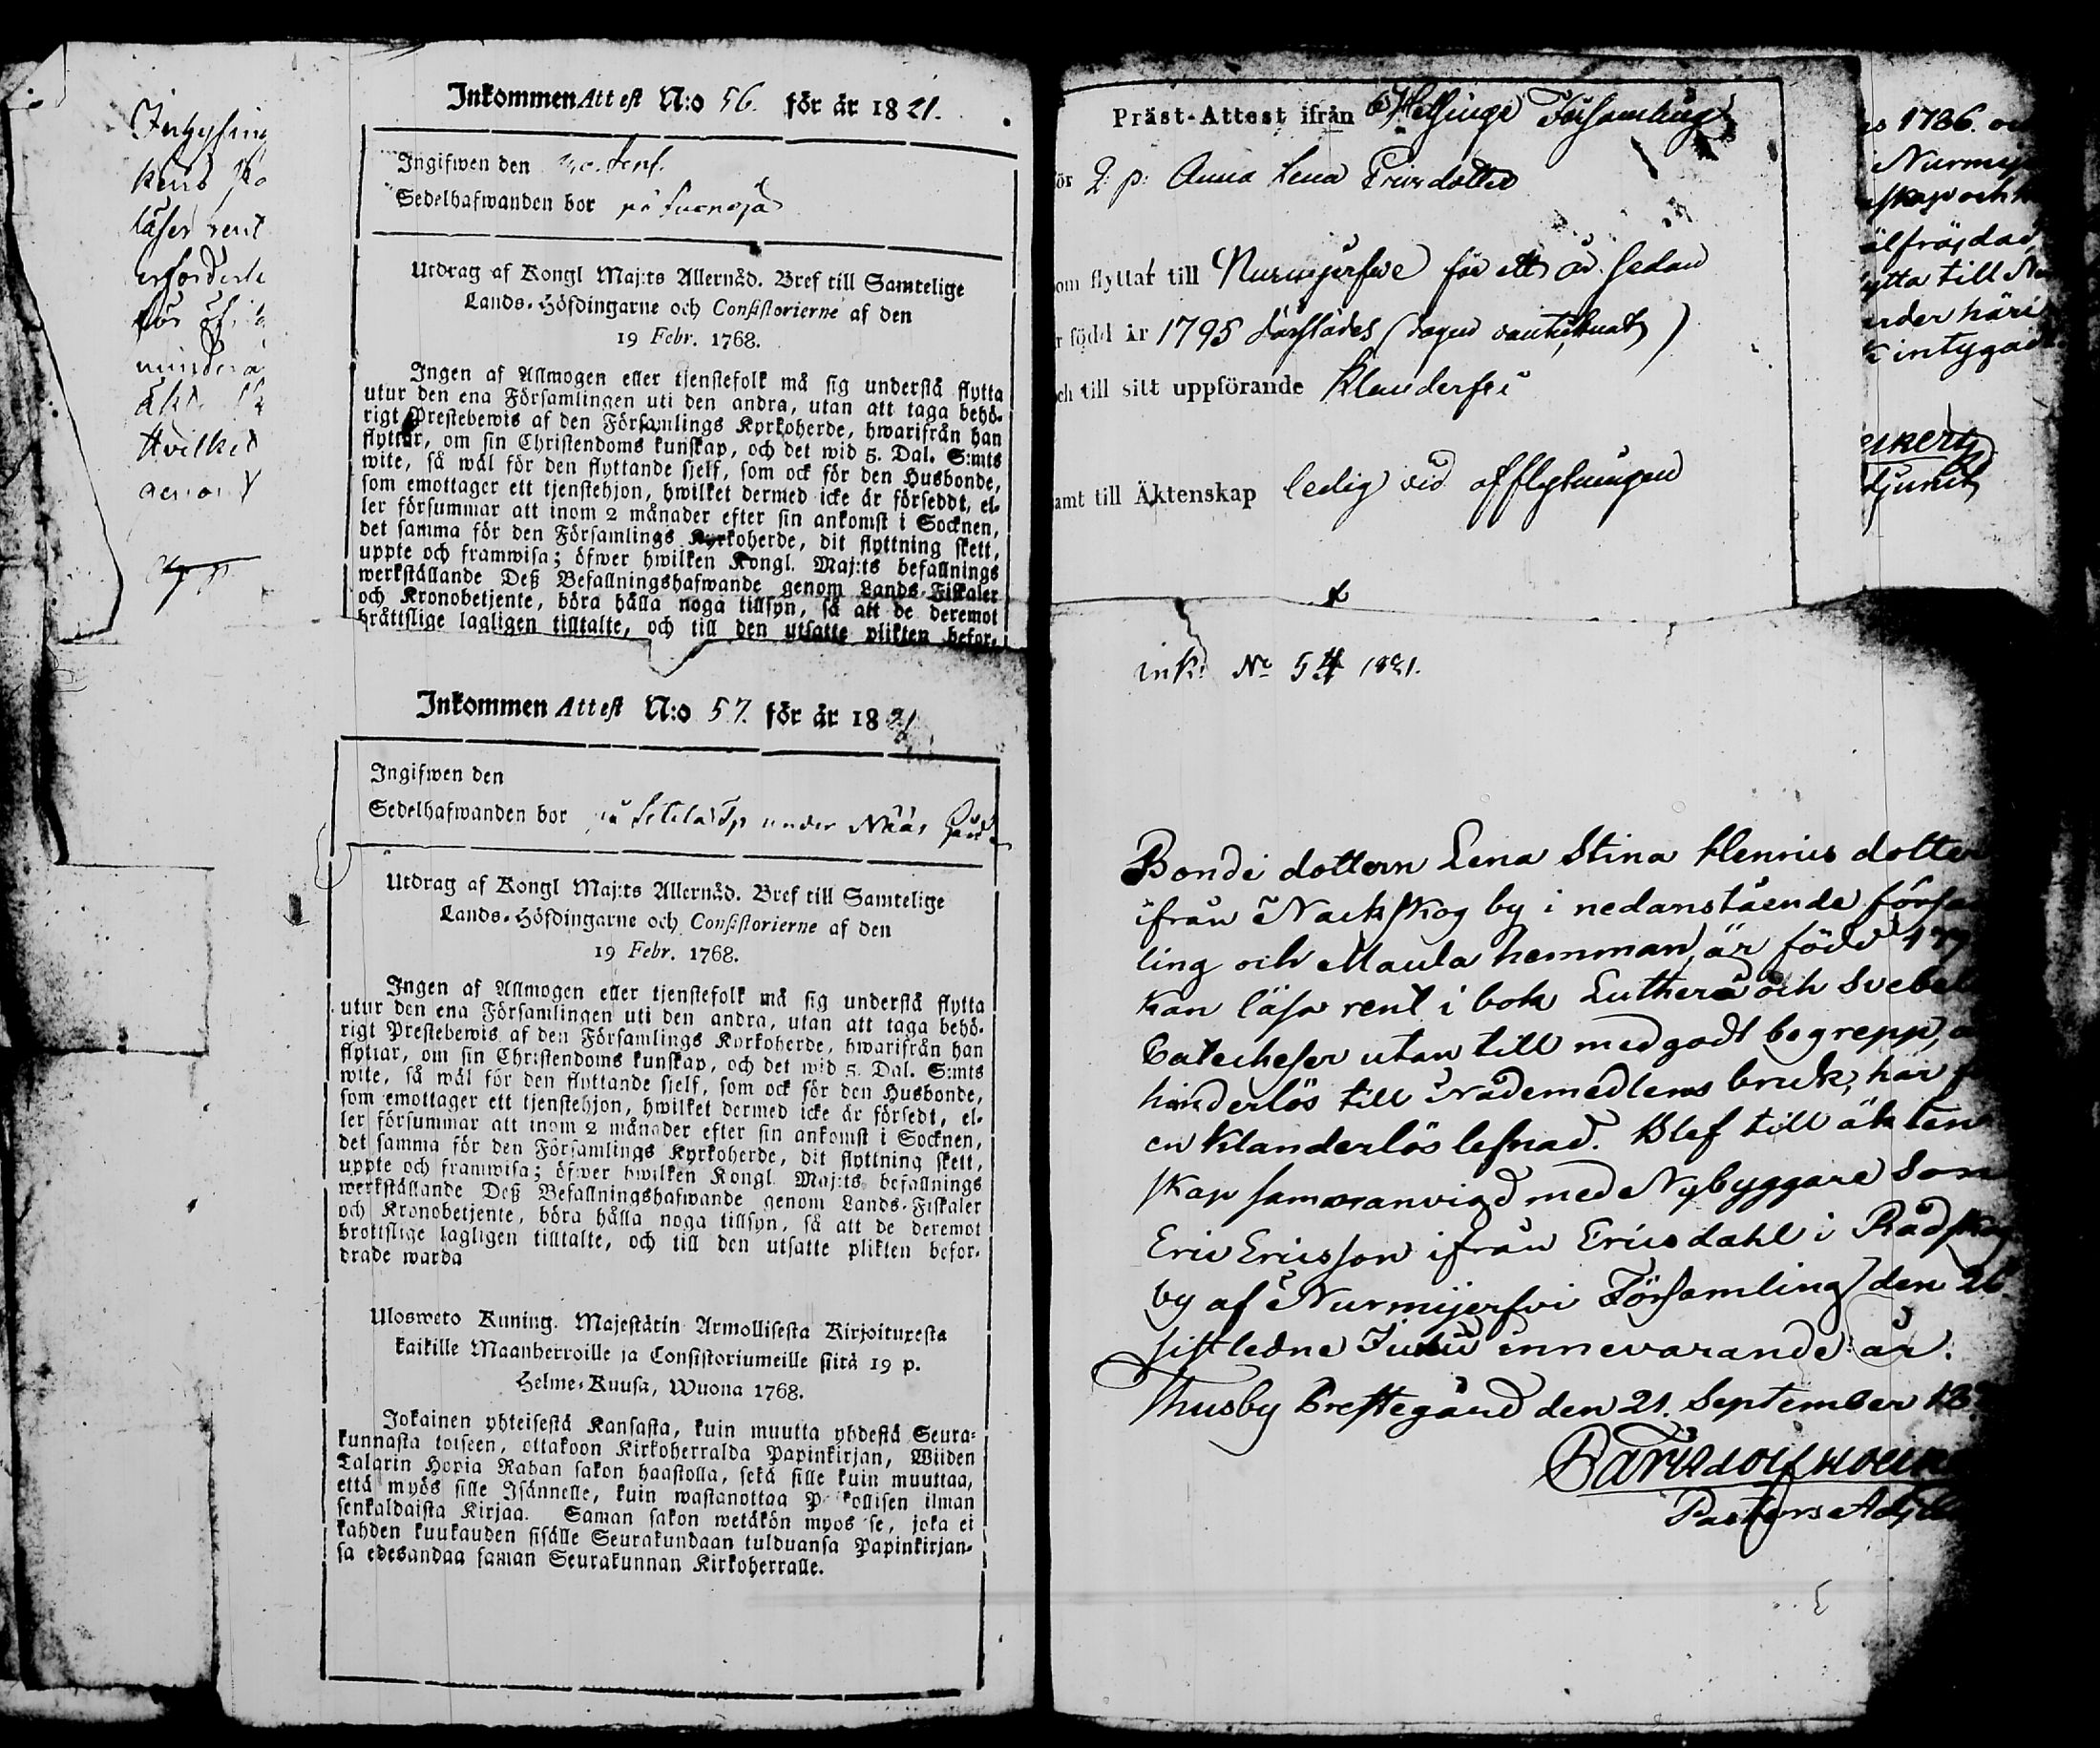 Intyg
kens
läser rent
erforderli
Hvilket
genom
Inkommen Attest N:o 56. för år 1821.
Ingifwen den
Sedelhafwanden bor på
Utdrag af Kongl Maj:ts Allernåd. Bref till Samtelige
Lands-Höfdingarne och Consistorierne af den
19 Febr. 1768.
Ingen af Allmogen eller tjenstefolk må sig understå flytta
utur den ena Församlingen uti den andra, utan att taga behö-
rigt Prestebewis af den Församlings Kyrkoherde, hwarifrån han
flyttar, om sin Christendoms kunskap, och det wid 5. Dal. S:mts
wite, så wäl för den flyttande sjelf, som ock för den Husbonde,
som emottager ett tjenstehjon, hwilket dermed icke är försedt, el-
ler försummar att inom 2 månader efter sin ankomst i Socknen,
det samma för den Församlings Kyrkoherde, dit flyttning skett,
uppte och framwisa; öfwer hwilken Kongl. Maj:ts befallnings
werkställande Deß Befallningshafwande genom Lands-Fiskaler
och Kronobetjente, böra hålla noga tillsyn, så att de deremot
bråttslige lagligen tilltalte, och till den utsatte plikten befor-
Inkommen Attest N:o 57. för år 1821
Ingifwen den
Sedelhafwanden bor på under Nääs Gård
Utdrag af Kongl Maj:ts Allernåd. Bref till Samtelige
Lands-Höfdingarne och Consistorierne af den
19 Febr. 1768.
Ingen af Allmogen eller tjenstefolk må sig understå flytta
utur den ena Församlingen uti den andra, utan att taga behö-
rigt Prestebewis af den Församlings Kyrkoherde, hwarifrån han
flyttar, om sin Christendoms kunskap, och det wid 5. Dal. S:mts
wite, så wäl för den flyttande sjelf, som ock för den Husbonde,
som emottager ett tjenstehjon, hwilket dermed icke är försedt, el-
ler försummar att inom 2 månader efter sin ankomst i Socknen,
det samma för den Församlings Kyrkoherde, dit flyttning skett,
uppte och framwisa; öfwer hwilken Kongl. Maj:ts befallnings
werkställande Deß Befallningshafwande genom Lands-Fiskaler
och Kronobetjente, böra hålla noga tillsyn, så att de deremot
brottslige lagligen tilltalte, och till den utsatte plikten befor-
drade warda
Ulosweto Kuning. Majestätin Armollisesta Kirjoituxesta
kaikille Maanherroille ja Consistoriumeille siitä 19 p.
Helme-Kuusa, Wuona 1768.
Jokainen yhteisestä Kansasta, kuin muutta yhdestä Seura-
kunnasta toiseen, ottakoon Kirkoherralda Papinkirjan, Wiiden
Talarin Hopia Rahan sakon haastolla, sekä sille kuin muuttaa,
että myös sille Isännelle, kuin wastanottaa Palkollisen ilman
senkaldaista Kirjaa. Saman sakon wetäkön myös se, joka ei
kahden kuukauden sisälle Seurakundaan tulduansa Papinkirjan-
sa edesandaa saman Seurakunnan Kirkoherralle.
Präst-Attest ifrån Helsinge Församling
ör P: p: Anna Lena Ericsdotter
om flyttat till Nurmijerfwe för ett år sedan
r född år 1795 därstädes (dagen oantecknat)
ch till sitt uppförande klanderfri
amt till Äktenskap ledig vid afflyttningen
ink. No 54 1821.
Bonde dottern Lena Stina Henrics dotter
ifrån Nackskog by i nedanstående försa
ling och Maula hemman, är född 177
kan läsa rent i bok Lutheri och Svebel
Catecheser utan till med godt begrepp,
hinderlös till nådemedlens bruk, har f
en klanderlös lefnad. Blef till äkten
skap sammanvigd med Nybyggare Son
Eric Ericsson ifrån Ericsdahl i Rådskog
by af Nurmijerfvi Församling den 26
sistledne Junii innevarande år.
Thusby Prestegård den 21. September 18
Pastors Adj
1786. oc
Nurmij
skap och
älfräjdad,
ytta till Nu
nder häri
intygad
djunct